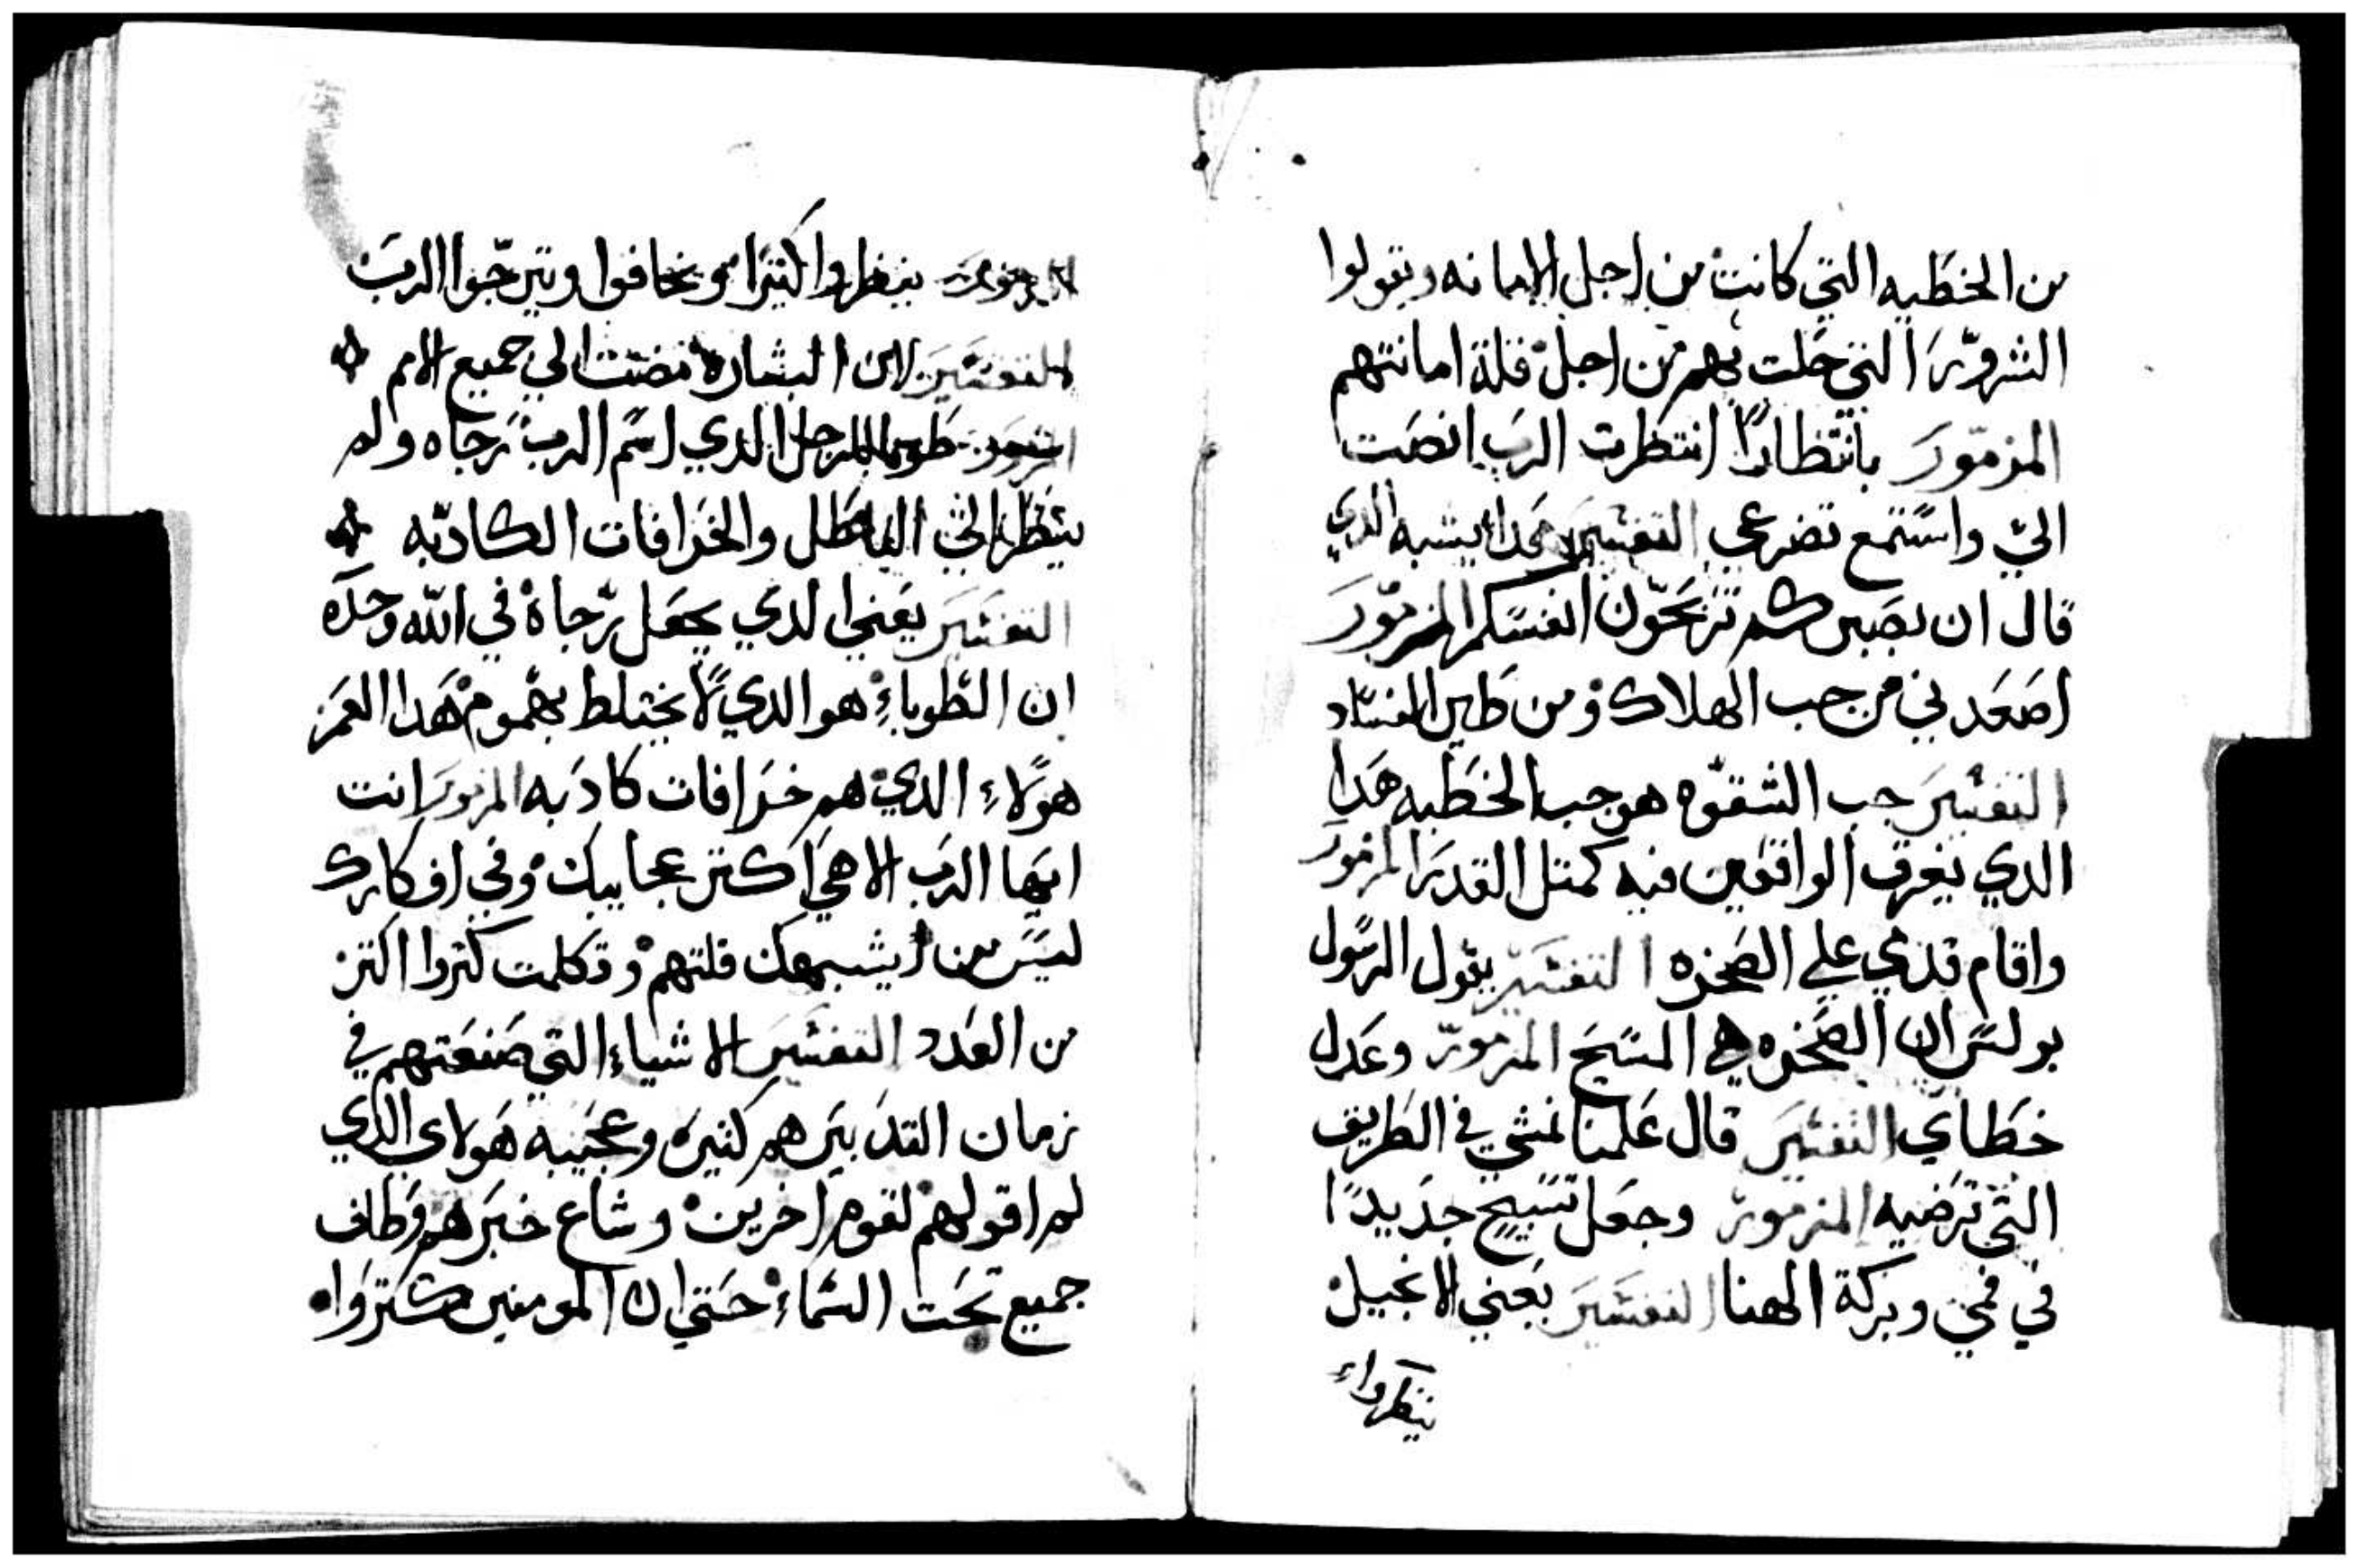 من الخطيه التي كانت من اجل الامانه ويقولوا
الشرور التي حلت بهم من اجل قلة امانتهم
المزمور بانتظارًا انتظرت الرب انصت
اليّ واستمع تضرعي التفسير هدا يشبه الدي
قال ان بصبركم تربحون انفسكم المزمور
اصعدني من جب الهلاك ومن طين الفساد
التفسير جب الشقوه هو جب الخطيه هدا
الدي يغرق الواقعين فيه كمتل القدير المزمور
واقام قدمي علي الصخره التفسير يقول الرسول
بولس ان الصخره هي المسيح المزمور وعدل
خطاي التفسير قال علمنا نمشي في الطريق
التي ترضيه المزمور وجعل تسبيح جديدًا
في فمي وبركة الهنا التفسير يعني الانجيل
ينظروا
المزمور ينظروا كثيرا ويخافوا ويترجوا الرب
التفسير لان البشاره مضت الي جميع الامم
المزمور طوبا للرجل الدي اسم الرب رجاه ولم
ينظر الي الباطل والخرافات الكادبه
التفسير يعني الدي يجعل رجاه في الله وحده
ان الطوباء هو الدي لا يختلط بهموم هدا العمر
هولاء الدي هم خرافات كادبه المزمور انت
ايها الرب الاهي اكتر عجايبك وفي افكارك
ليس من يشبهك قلتهم وتكلمت كتروا اكتر
من العدد التفسير الاشياء التي صنعتهم في
زمان القديم هم كثيره وعجيبه هولاي الدي
لم اقولهم لقوم اخرين وشاع خبرهم وطاف
جميع تحت السماء حتي ان المومنين كتروا